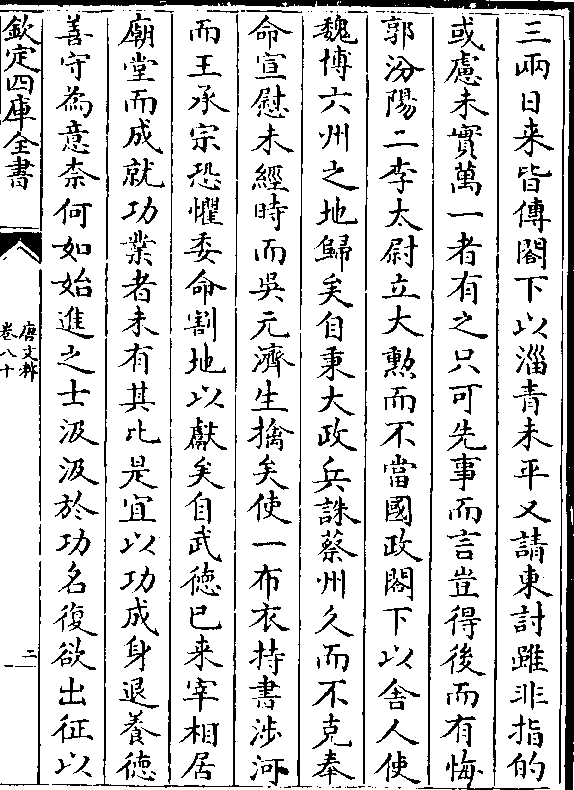 三兩日来皆傳閣下以淄青未平又請東討雖非指的
或慮未實萬一者有之只可先事而言豈得後而有悔
郭汾陽二李太尉立大勲而不當國政閣下以舍人使
魏博六州之地歸矣自秉大政兵誅蔡州久而不克奉
命宣慰未經時而吳元濟生擒矣使一布衣持書涉河
而王承宗恐懼委命割地以獻矣自武德已来宰相居
廟堂而成就功業者未有其比是宜以功成身退養德
善守為意奈何如始進之士汲汲於功名復欲出征以
欽定四庫全書
唐文粹
卷八十
二